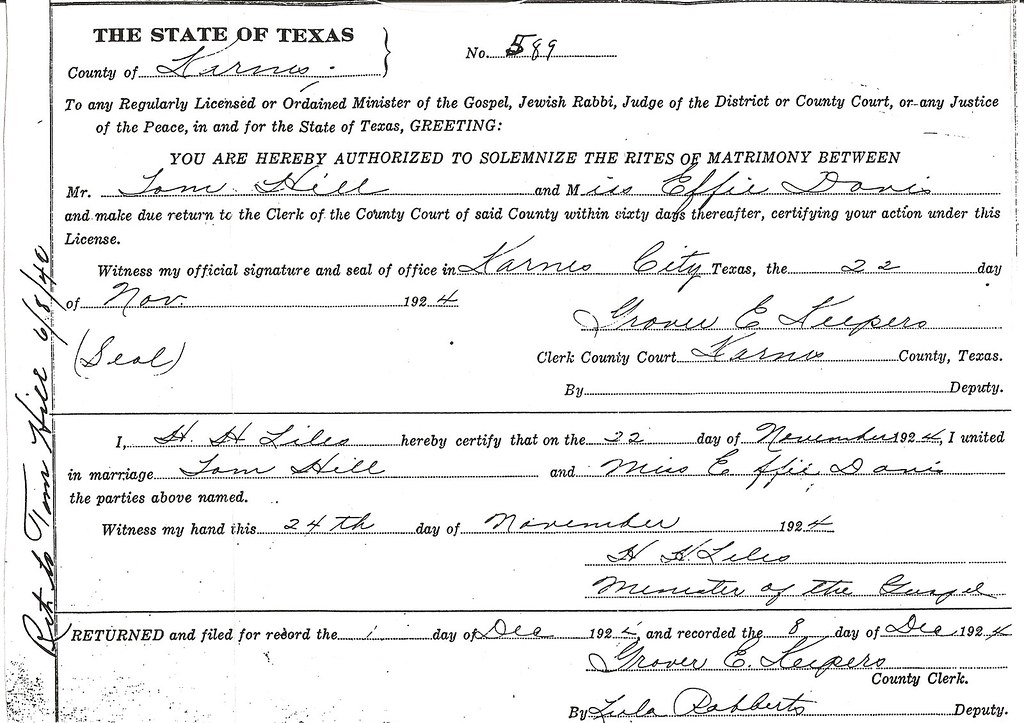 THE STATE OF TEXAS
No. 589
County of Karnes.
To any Regularly Licensed or Ordained Minister of the Gospel, Jewish Rabbi, Judge of the District or County Court, or any Justice
of the Peace, in and for the State of Texas, GREETING:
YOU ARE HEREBY AUTHORIZED TO SOLEMNIZE THE RITES OF MATRIMONY BETWEEN
Mr. Tom Hill and Miss Effie Davis
and make due return to the Clerk of the County Court of said County within sixty days thereafter, certifying your action under this
License.
Witness my official signature and seal of office in Karnes City Texas, the 22 day
of Nov. 1924
Grover E Keepers
(Seal)
Clerk County Court Karnes County, Texas.
By Deputy.
I, H. H Liles hereby certify that on the 22 day of November 1924, I united
in marriage Tom Hill and Miss Effie Davis
the parties above named.
Witness my hand this 24th day of November 1924
H H. Liles
Minister of the Gospel
RETURNED and filed for record the 1 day of Dec 1924, and recorded the 8 day of Dec 1924
Grover E. Keepers
County Clerk.
By Lula Robberts Deputy.
Ret to Tom Hill 6/8/40